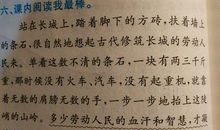 六、课内阅读我最棒。
站在长城上,踏着脚下的方砖,扶着墙上
的条石,很自然地想起古代修筑长城的劳动人
民来。单看这数不清的条石,一块有两三千斤
重,那时候没有火车、汽车,没有起重机,就靠
着无数的肩膀无数的手,一步一步地抬上这陡
峭的山岭。多少劳动人民的血汗和智慧,才凝